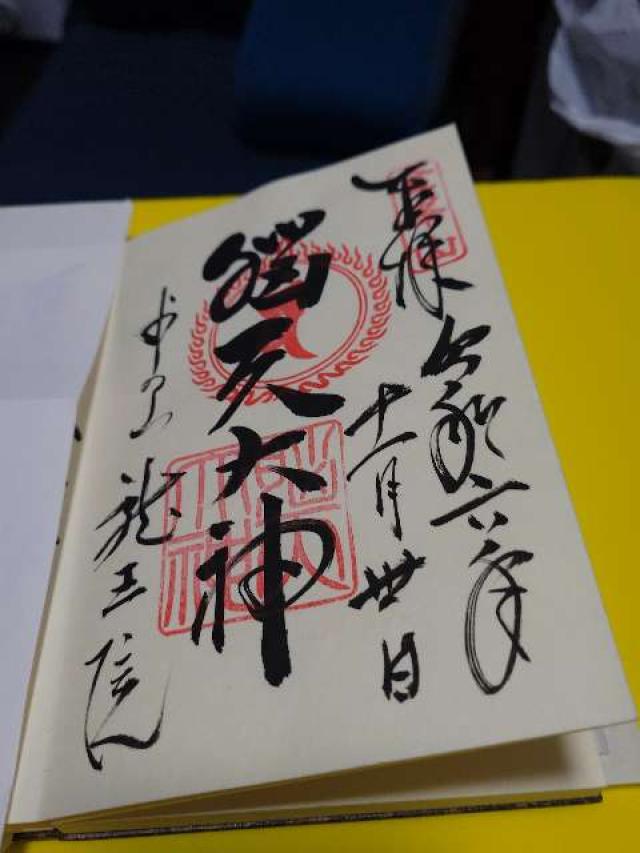 奉拝 令和六年
十一月丗日
天大神
中山 龍王院